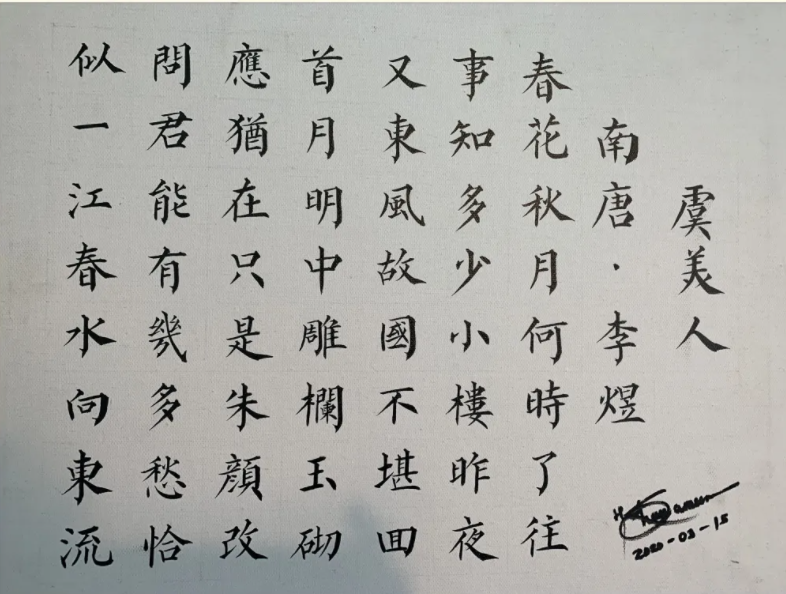 虞美人
南唐·李煜
春花秋月何時了往
事知多少小樓昨夜
又東風故國不堪回
首月明中雕欄玉砌
應猶在只是朱顏改
問君能有幾多愁恰
似一江春水向東流
2020-03-15